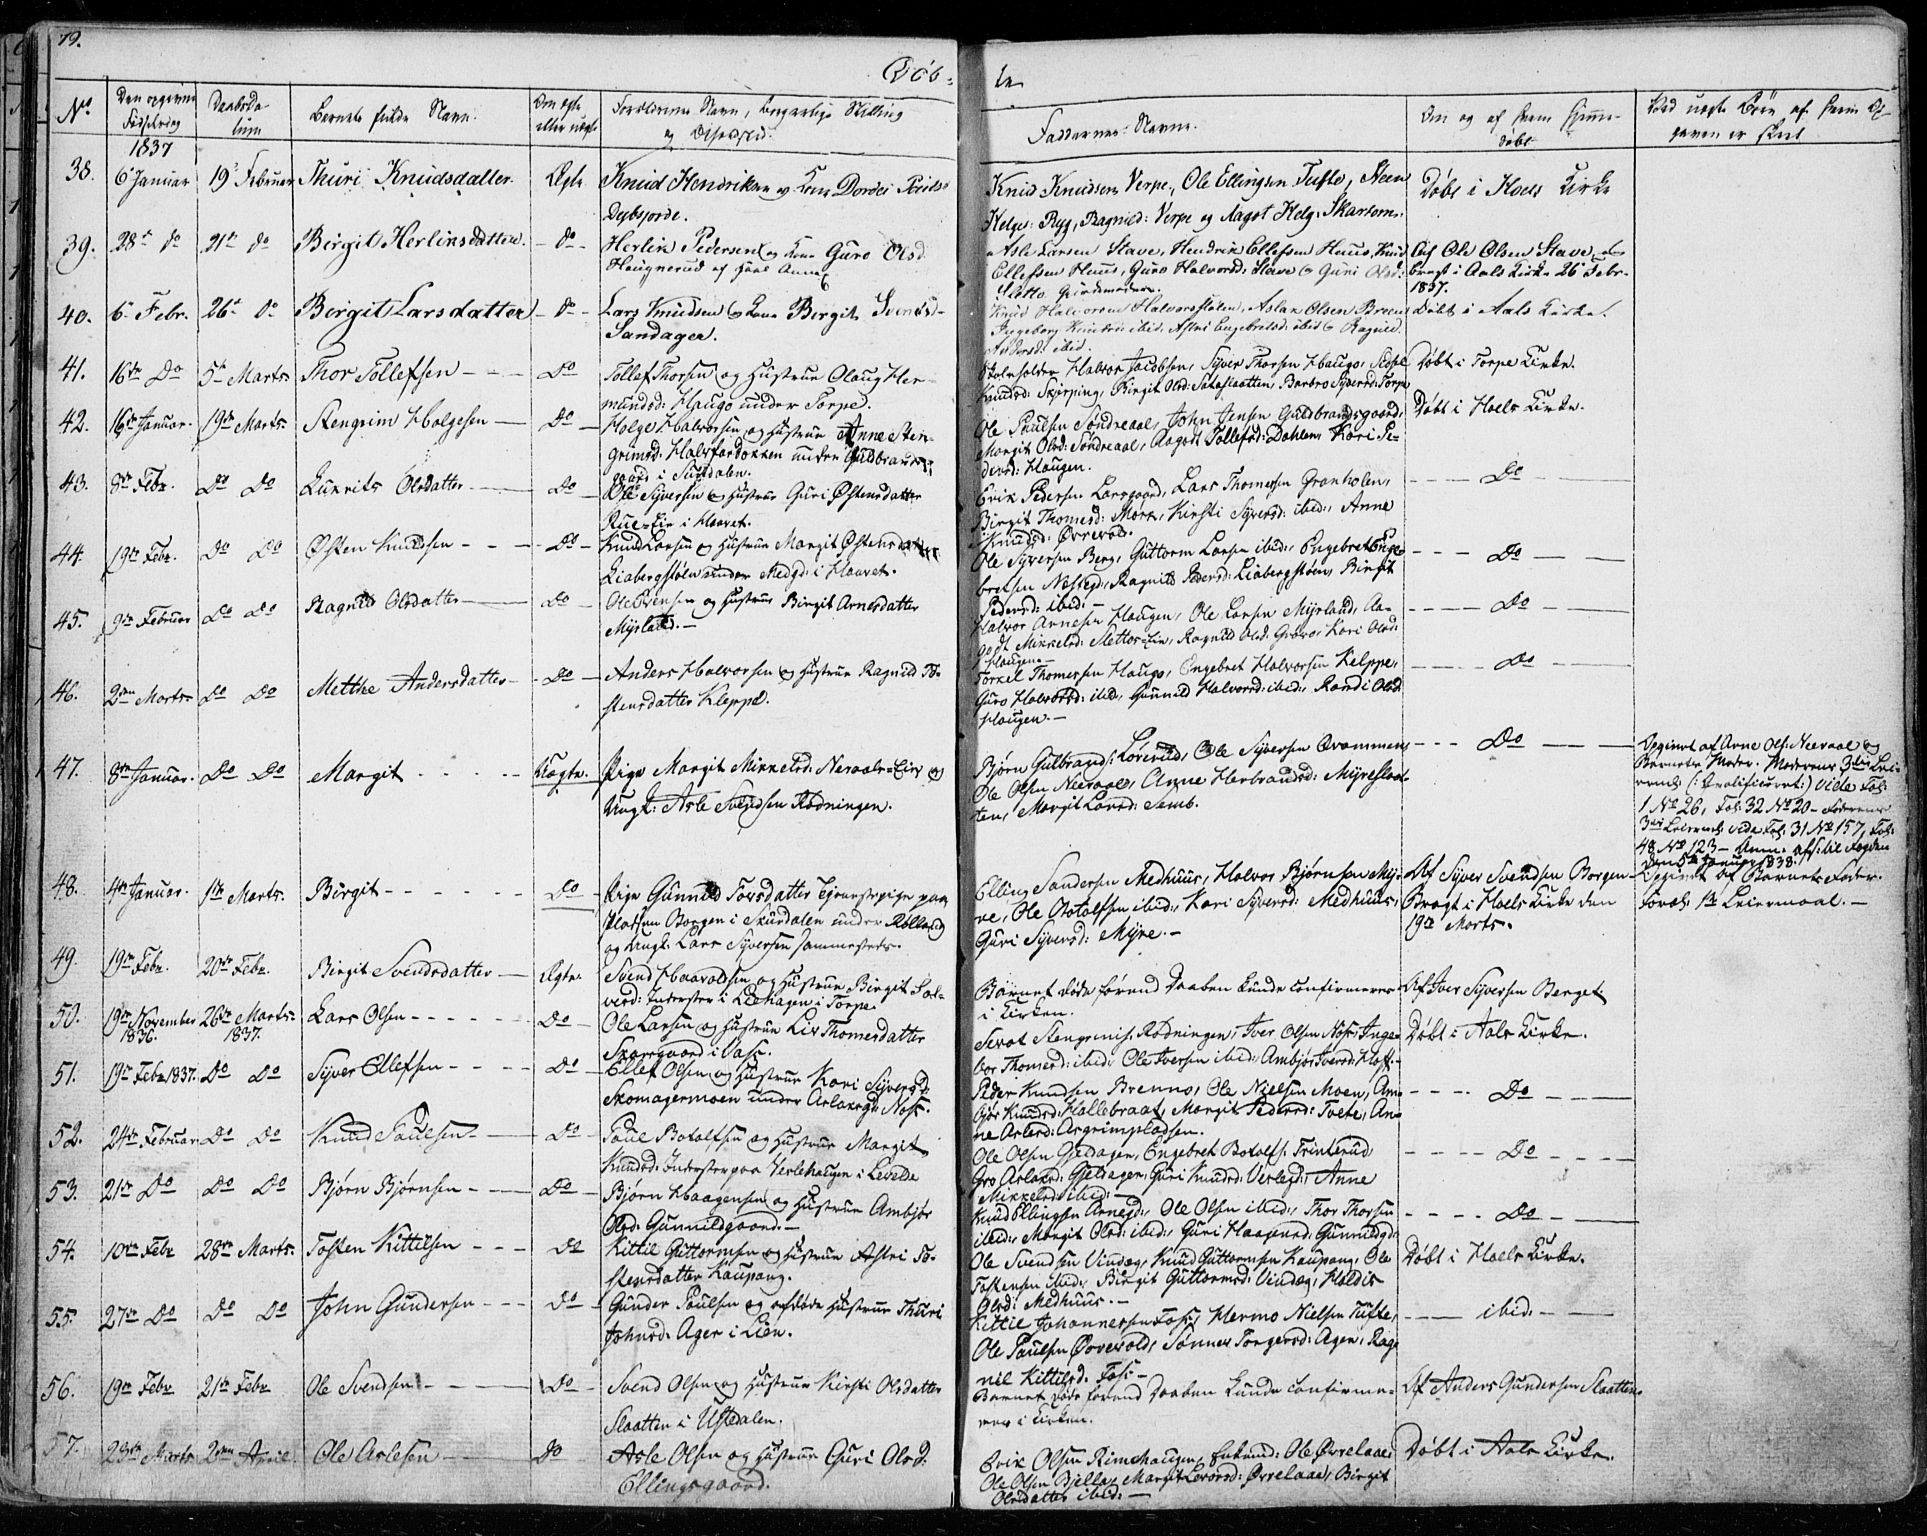 79.
Døb-
te
No
Den opgivne
Fødselsdag
Daabsda-
tum
Barnets fulde Navn.
Om ægte
eller uægte
Forældrenes Navn, borgerlige Stilling
og Opholdssted.
Faddernes Navne.
Om og af hvem hjemme-
døbt
Ved uægte Børn af hvem Op-
given er skeet
1837
38. 6 Januar 19 Februar Thuri Knudsdatter. Ægte
Knud Hendriksen og Kone Dordei
Knud Knudsen Verpe, Ole Ellingsen Tufte, Steen
Helgs: Ryg, Ragnild: Verpe og Aagot Helg:
Døbt i Hoels Kirke
39. 28 do 21 do Birgit Herlinsdatter. - do -
Herlik Pedersen og Kone Guro Olsd
Haugnerud af Hoel Annex
Asle Larsen Stave, Hendrik Ellefsen Huus, Knud
Ellefsen Huus, Guro Halvorsd: Stave og Guri Olsd:
Slette Gudmodere.
Af Ole Olsen Stave, og
bragt i Aals Kirke 26 Febr.
1837.
40. 6 Febr. 26 do Birgit Larsdatter - do -
Lars Knudsen og Kone Birgit Svendsd-
Sandager.
Knud Halvorsen Halvorsstølen, Aslak Olsen
Ingeborg Knudsd: ibid. Astri Engebretsd: ibid og Ragnild
Andersd: ibid.
Døbt i Aals Kirke.
41. 16de Do 5te Marts. Thor Tollefsen - - - Do
Tollef Thorsen og Hustrue Olaug Her-
mundsd: Haugo under Torpe.
Halvor Jacobsen, Syver Thorsen Haugo, Sidsel
Knudsd: Skjerping, Birgit Olsd: Barbro Syversd: Torpe
Døbt i Torpe Kirke.
42. 16de Januar. 19de Marts. Stengrim Helgesen - Do -
Helge Halvorsen og Hustrue Anne Sten-
grimsd: Halvfardokken under Guldbrands-
gaard i Sundalen.
Ole Paulsen Søndreaal, John Jensen Guldbrandsgaard,
Margit Olsd: Søndreaal, Aagodt Tollefsd: Dahlen, Kari Pe-
dersd: Haugen.
Døbt i Hoels Kirke.
43. 8de Febr. Do Do Lukrits Olsdatter - Do -
Ole Syversen og Hustrue Guri Østensdatter
Rue-Eie i Haavet.
Erik Pedersen Larsgaard, Lars Thomesen Granholen,
Birgit Thomesd: Mørk, Kirsti Syversd: ibid:, Anne
Knudsd: Øvrevold.
- - - - Do
44. 19de Febr. Do Do Østen Knudsen - - - Do -
Knud Larsen og Hustrue Margit Østensdatter
Liabergstøen under Medgd: i Haavet.
Ole Syversen Berg, Guttorm Larsen ibid:, Engebret Enge-
bretsen Nestegd:, Ragnild Pedersd: Liabergstøen, Birgit
Pedersd: ibid: -
- - - Do -
45. 9de Februar Do Do Ragnild Olsdatter - Do -
Ole Svensen og Hustrue Birgit Arnesdatter
Myrland. -
Halvor Arnesen Haugen, Ole Larsen Myrland, Aa-
godt Mikkelsd: Slettos-Eie, Ragnild Olsd: Grøvo, Kari Olsd:
Haugen. -
- - - - Do -
46. 2den Marts Do Do Metthe Andersdatter - Do -
Anders Halvorsen og Hustrue Ragnild To-
stensdatter Kleppe.
Torkel Thomesen Haugo, Engebret Halvorsen Kleppe,
Guro Halvorsd: ibid:, Gunnild Halvorsd: ibid:, Randi Olsd
Haugen. -
- - - - Do -
47. 8de Januar. Do Do Margit - - - - - Uægte.
Pige Margit Mikkelsd: Neraals-Eie og
Ungk: Asle Svendsen Rødningen.
Bjørn Gulbrands: Løverud, Ole Syversen Qvammen,
Ole Olsen Neeraal, Anne Herbrandsd: Myreslaat-
ten, Margit Larsd: Semb.
- - - Do -
Opgivet af Arne Ols: Neeraal og
Barnets Moder. Moderens 3die Leie-
remd: (: Qvalificeret:) vide Fol:
1 No 26, Fol: 32 No 20 - Faderens
3die Leiermd: vide Fol: 31 No 157, Fol:
48 No 123 - Anm. afs: til Fogden
den 5te Januar 1838.
48. 4de Januar. 1ste Marts. Birgit - - - - - - Do -
Pige Gunnild Torsdatter Tjenestepige paa
Pladsen Borgen i Skurdalen under Rolland
og Ungk: Lars Syversen sammesteds.
Elling Sandersen Medhuus, Halvor Bjørnsen Myr-
re, Ole Botolfsen ibid:, Kari Syversd: Medhuus,
Guri Syversd: Myre. -
Af Syver Svendsen Borgen
Bragt i Hoels Kirke den
19de Marts.
Opgivet af Barnets Fader.
Foræld: 1ste Leiermaal. -
49. 19de Febr. 20de Febr. Birgit Svendsdatter - Ægte.
Svend Haavaldsen og Hustrue Birgit Hal-
vorsd: Inderster i Liehagen i Torpe.
Barnet døde førend Daaben kunde confirmeres
i Kirken.
Af Iver Syversen Berget
50. 19de November 26de Marts. Lars Olsen - - - - - - Do -
1836. 1837.
Ole Larsen og Hustrue Liv Thomesdatter
Skarsgaard i Vats.
Sevat Stengrims: Rødningen, Iver Olsen Noss, Inge-
bor Thomesd: ibid: Ole Iversen ibid:, Ambjør Iversd: Hoff-
Døbt i Aals Kirke.
51. 19de Febr 1837. Do Do Syver Ellefsen - - - - - Do -
Ellef Olsen og Hustrue Kari Syversd:
Skomagermoen under Aslaksgd: Noss.
Peder Knudsen Brenno, Ole Nielsen Moen, Am-
bjør Knudsd: Hallebraat, Margit Pedersd: Tveto, An-
ne Aslesd: Asgrimpladsen.
- - - - Do -
52. 24de Februar Do Do Knud Paulsen - - Do -
Paul Botolfsen og Hustrue Margit
Knudsd: Inderster paa Verlehaugen i Leveld
Ole Olsen Gjeldagen, Engebret Botolfs: Trinterud,
Gro Aslaksd: Gjeldagen, Guri Knudsd: Verlegd:, Anne
Mikkelsd: ibid: -
- - - - Do - - - -
53. 21de Do Do Do Bjørn Bjørnsen - - Do -
Bjørn Haagensen og Hustrue Ambjør
Olsd: Gunnildgaard. -
Knud Ellingsen Arnegd:, Ole Olsen ibid:, Thor Thorsen
ibid:, Margit Olsd: ibid:, Guri Haagensd: Gunnildgd:
- - - - Do -
54. 10de Febr 28de Marts. Tosten Kittilsen - - - Do
Kittil Guttormsen og Hustrue Astri To-
stensdatter Kaupang.
Ole Svendsen Vindæg, Knud Guttormsen Kaupang, Ole
Tostensen ibid:, Birgit Guttormsd: Vindæg, Haldis
Olsd: Medhuus. -
Døbt i Hoels Kirke.
55. 27de Do Do Do John Gundersen - - - Do -
Gunder Paulsen og afdøde Hustrue Thuri
Johnsd: Ager i Lien.
Kittil Johannessen Foss, Hermo Nielsen Tufte,
Ole Paulsen Øvrevold, Sønnev Torgersd: Agen, Rag-
nil Kittilsd: Foss -
- - - ibid: -
56. 19de Febr 21de Febr Ole Svendsen - - - Do -
Svend Olsen og Hustrue Kirsti Olsdatter
Slaatten i Ustedalen.
Barnet døde førend Daaben kunde confirme-
res i Kirken.
Af Anders Gundersen Slaatten
57. 23de Marts 2den April. Ole Aslesen - - Do
Asle Olsen og Hustrue Guri Olsd.
Ellingsgaard.
Erik Olsen Rimehaugen, Enkemd: Ole Øvrelaae,
Ole Olsen Bjella, Margit Larsd: Øvrelaae, Birgit
Olsdatter ibid: -
Døbt i Aals Kirke.